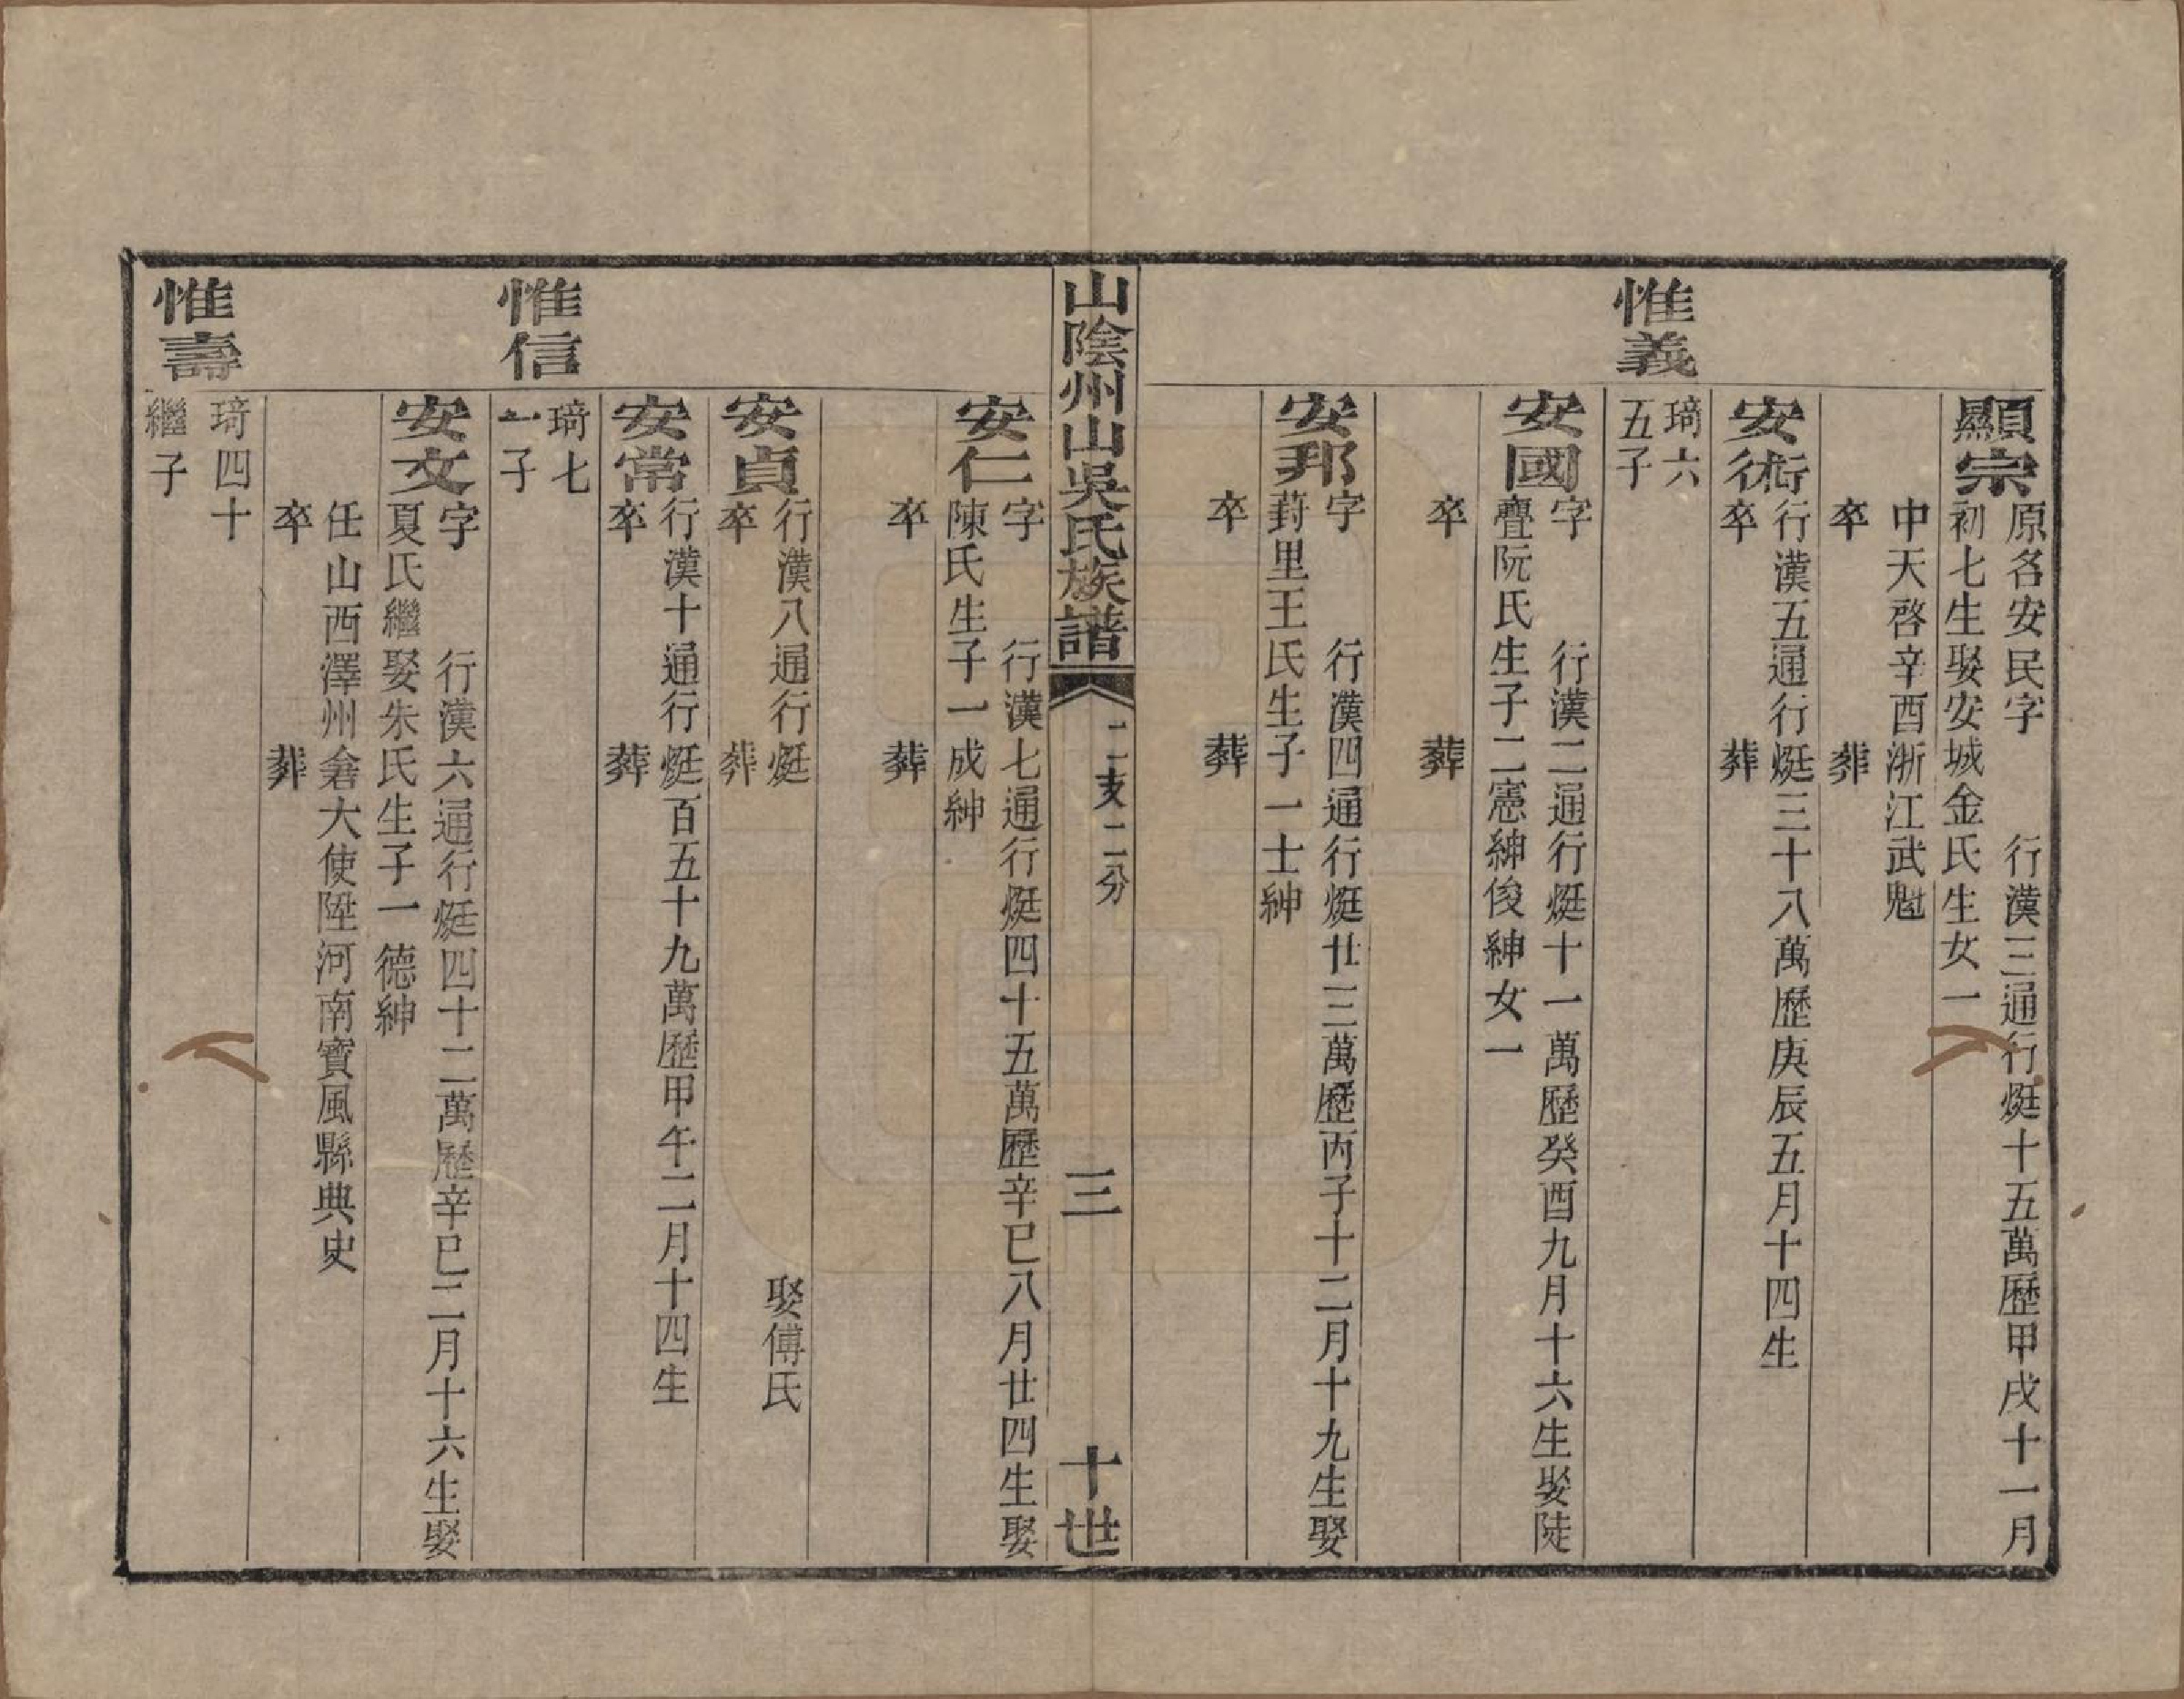 顯宗
原名安民字　行漢三通行烶十五萬歷甲戌十一月
初七生娶安城金氏生女一
中天啓辛酉浙江武魁
卒　葬
安衏
行漢五通行烶三十八萬歷庚辰五月十四生
卒　葬
惟義
琦六
五子
安國
字　行漢二通行烶十一萬歷癸酉九月十六生娶陡
亹阮氏生子二憲紳俊紳女一
卒　葬
安邦
字　行漢四通行烶廿三萬歷丙子十二月十九生娶
葑里王氏生子一士紳
卒　葬
山陰州山吳氏族譜
二支二分
三
十世
安仁
字　行漢七通行烶四十五萬歷辛巳八月廿四生娶
陳氏生子一成紳
卒　葬
安貞
行漢八通行烶　娶傅氏
卒　葬
安常
行漢十通行烶百五十九萬歷甲午二月十四生
卒　葬
惟信
琦七
一子
安文
字　行漢六通行烶四十二萬歷辛巳二月十六生娶
夏氏繼娶朱氏生子一德紳
任山西澤州倉大使陞河南寳風縣典史
卒　葬
惟壽
琦四十
繼子